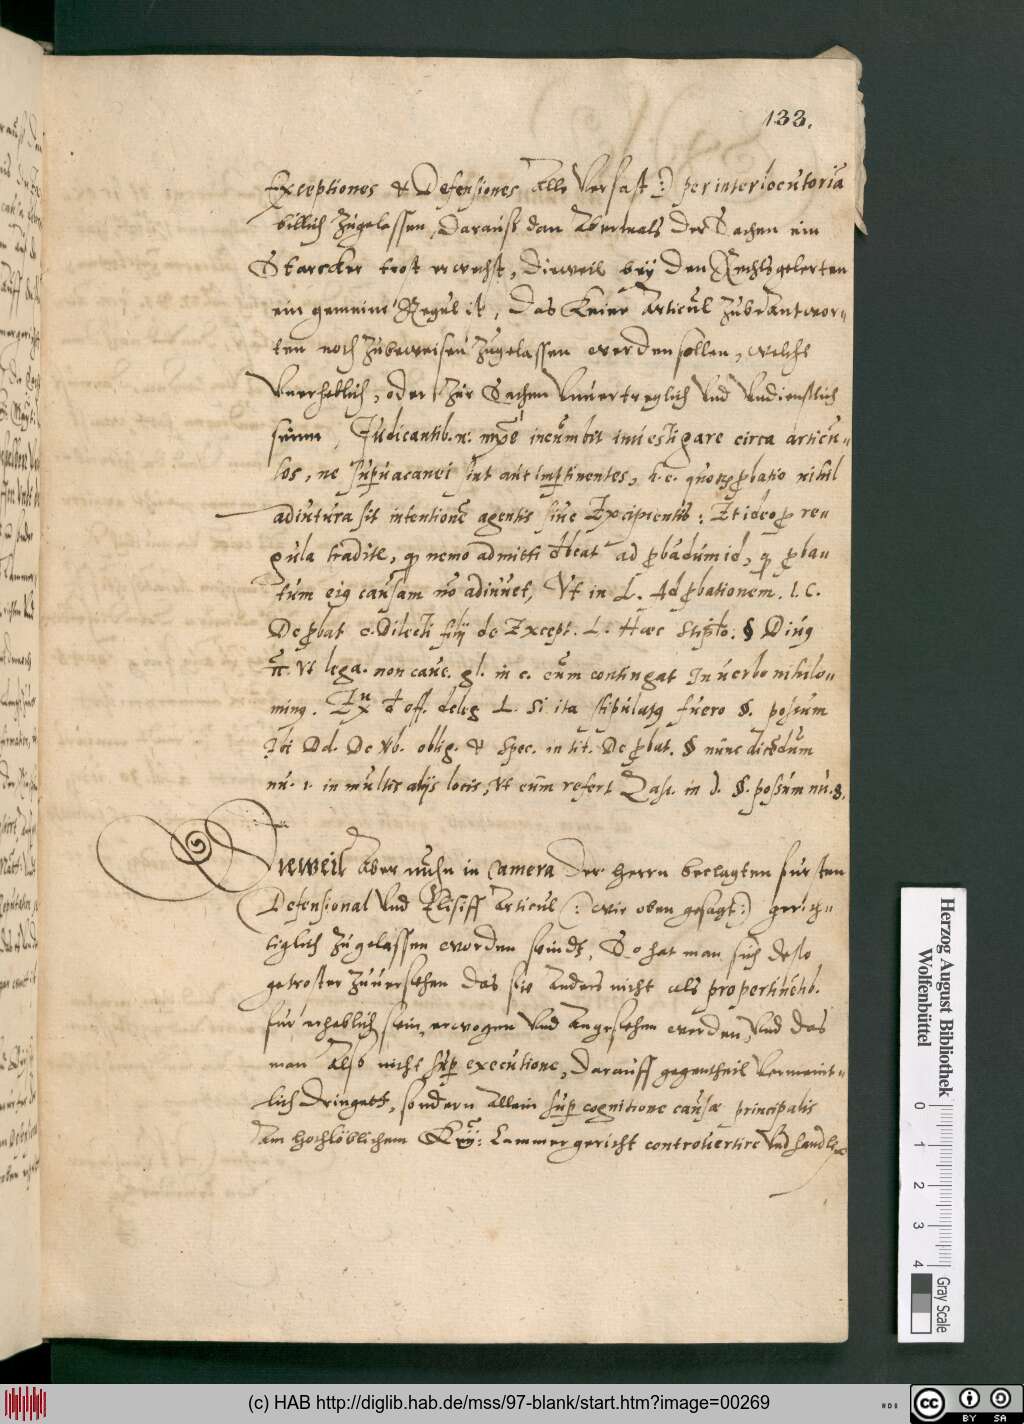 133.
Exceptiones & Defensiones Alle Verfast :) per interlocutoria
billich Zugelassen, darauß dan Abermals der Sachen ein
Starcker trost erwechst, dieweil beÿ den Rechtsgelerten
ein gemeine Regul ist, das Keine Articul Zubeantwor-
ten noch Zubeweisen Zugelassen werden sollen, welche
Vnerheblich, oder Zur Sachen Vnuertreglich Vnd Vndienstlich
seinn, Judicantib. n. incumbit inuestigare circa articu-
los, ne supuacanei sint aut imptinentes, h. e. quorum pbatio nihil
adiutura sit intentione agentis siue Excipientis: Et ideo p re-
gula tradite, q nemo admitti debeat ad pbadum id, q pba-
tum eig causam no adiuuet, Vt in L. Ad pbationem. l. C.
De pbat c. Dilecti filij de Except. L. Haec stip. § Diug
n. Vt lega. non caue. gl. in c. cum contingat In uerbo nihilo-
ming. Ex d off. deleg L. Si ita stipulatg fuero §. possum
Ibi Dd. De Vb. oblig. & Spec. in tit. De pbat. § nunc dicedum
nu. 1. in multis alijs locis, Vt eum refert Zasi. in d. §. possum nu. 8.
Dieweil Aber nuhn in Camera der herrn beclagten fursten
Defensional Vnd Elisiff Articul (: wie oben gesagt :) gericht-
tiglich Zugelassen worden seindt, So hat man sich desto
getroster Zuuersehen das sie Anders nicht als pro pertinentib.
fur erheblich sein, erwogen Vnd Angesehen werden, Vnd das
man Also nicht sup executione, darauff gegentheil Vermeint-
lich dringett, sondern Allein sup cognitione causæ principalis
Am hochlöblichem Keÿ: Cammergericht controuertire Vnd handle
Herzog August Bibliothek
Wolfenbüttel
0 1 2 3 4
Gray Scale
(c) HAB http://diglib.hab.de/mss/97-blank/start.htm?image=00269
cc BY SA